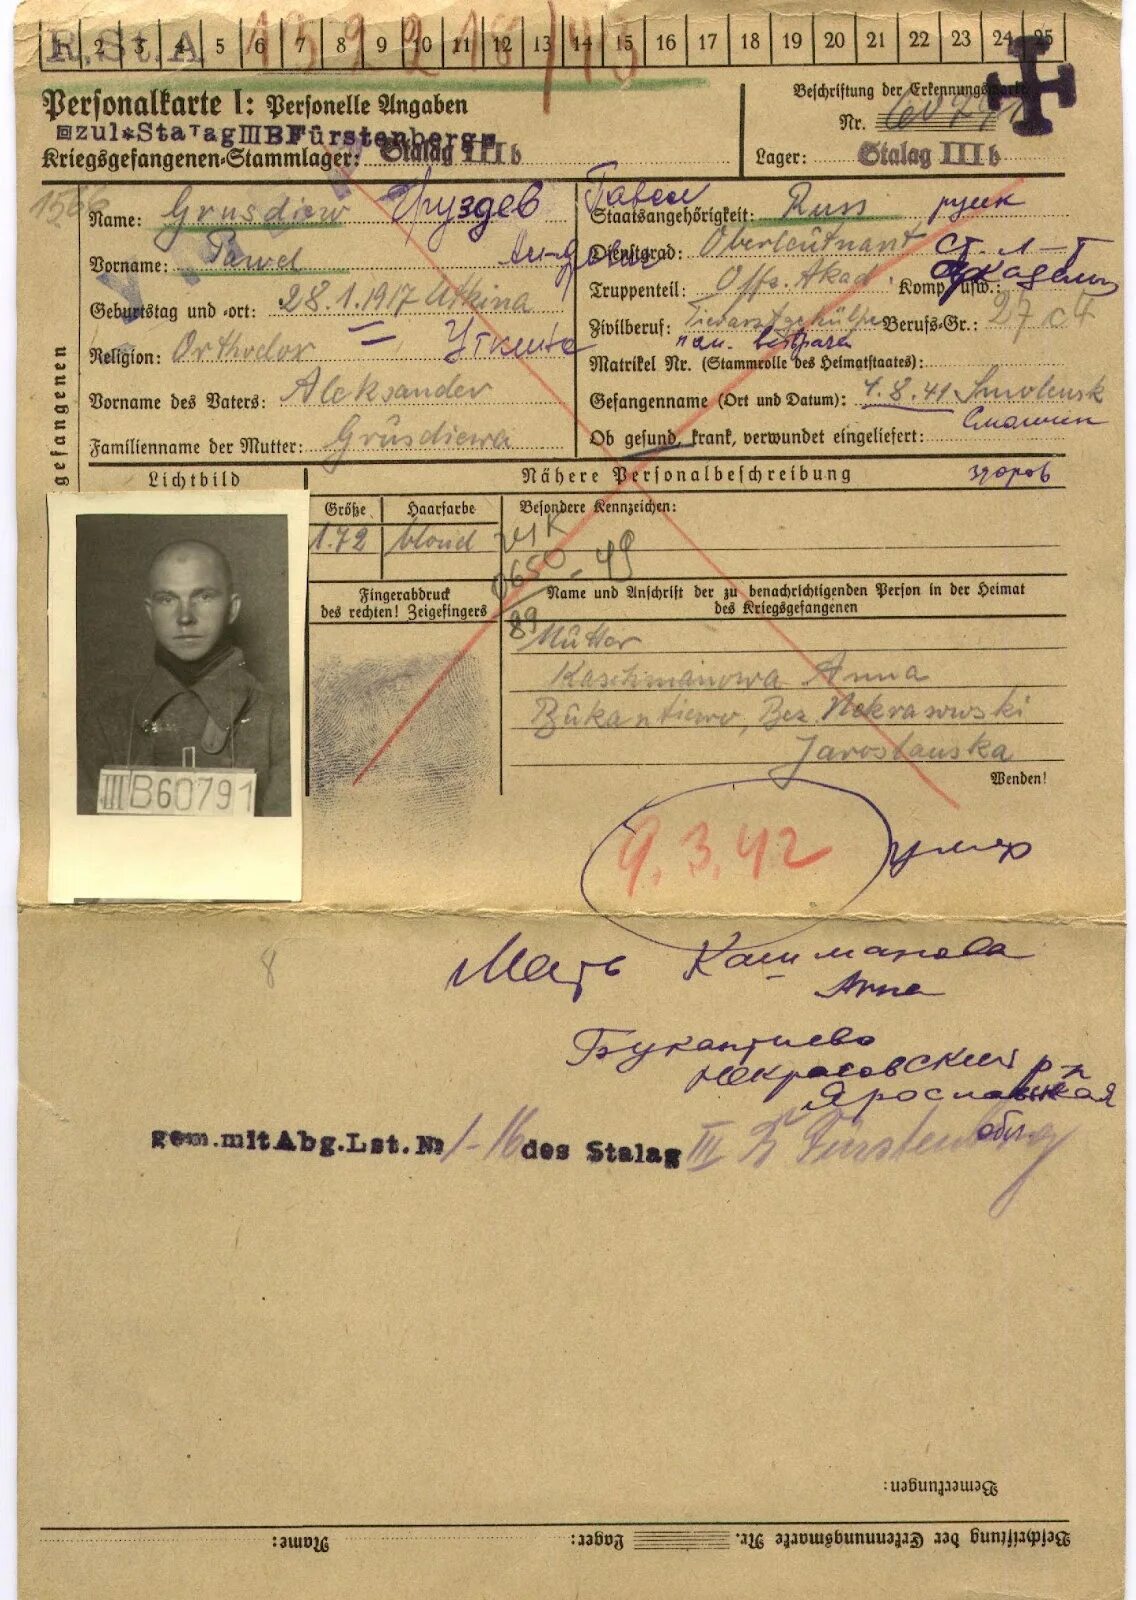 R.St.A
1 2 3 4 5 6 7 8 9 10 11 12 13 14 15 16 17 18 19 20 21 22 23 24 25
Personalkarte I: Personelle Angaben
Beschriftung der Erkennungsmarke
Nr. 60791
zul*StaTagIIIB Fürstenberg
Kriegsgefangenen-Stammlager: Stalag III b
Lager: Stalag III b
1566
Name: Grusdiew Груздев Павел
Vorname: Pawel
Geburtstag und -ort: 28.1.1917 Utkina
Religion: Orthodox
Vorname des Vaters: Aleksander
Familienname der Mutter: Grusdiewa
Staatsangehörigkeit: Russ русск
Dienstgrad: Oberleutnant Ст. Л-Т
Truppenteil: Offs. Akad. Komp. usw.:
Zivilberuf: Berufs-Gr.: 27
Matrikel Nr. (Stammrolle des Heimatstaates):
Gefangenname (Ort und Datum): 4.8.41 Smolensk
Смоленск
Ob gesund, krank, verwundet eingeliefert:
здоров
gefangenen
Lichtbild
Nähere Personalbeschreibung
Größe Haarfarbe Besondere Kennzeichen:
1.72 blond
0650-49
89
Fingerabdruck
des rechten! Zeigefingers
Name und Anschrift der zu benachrichtigenden Person in der Heimat
des Kriegsgefangenen
Mutter
Kaschmanowa Anna
Bukantiewo, Bez. Nekrasowski
Jaroslauska
Wenden!
III B 60791
9.3.42 умер
8
Мать Кашманова
Анна
Букантиево
Некрасовский р-н
Ярославская
обл.
gem.mitAbg.Lst.№ 1-16 des Stalag III B Fürstenberg
Bemerkungen:
Beschriftung der Erkennungsmarke Nr. Lager: Name: